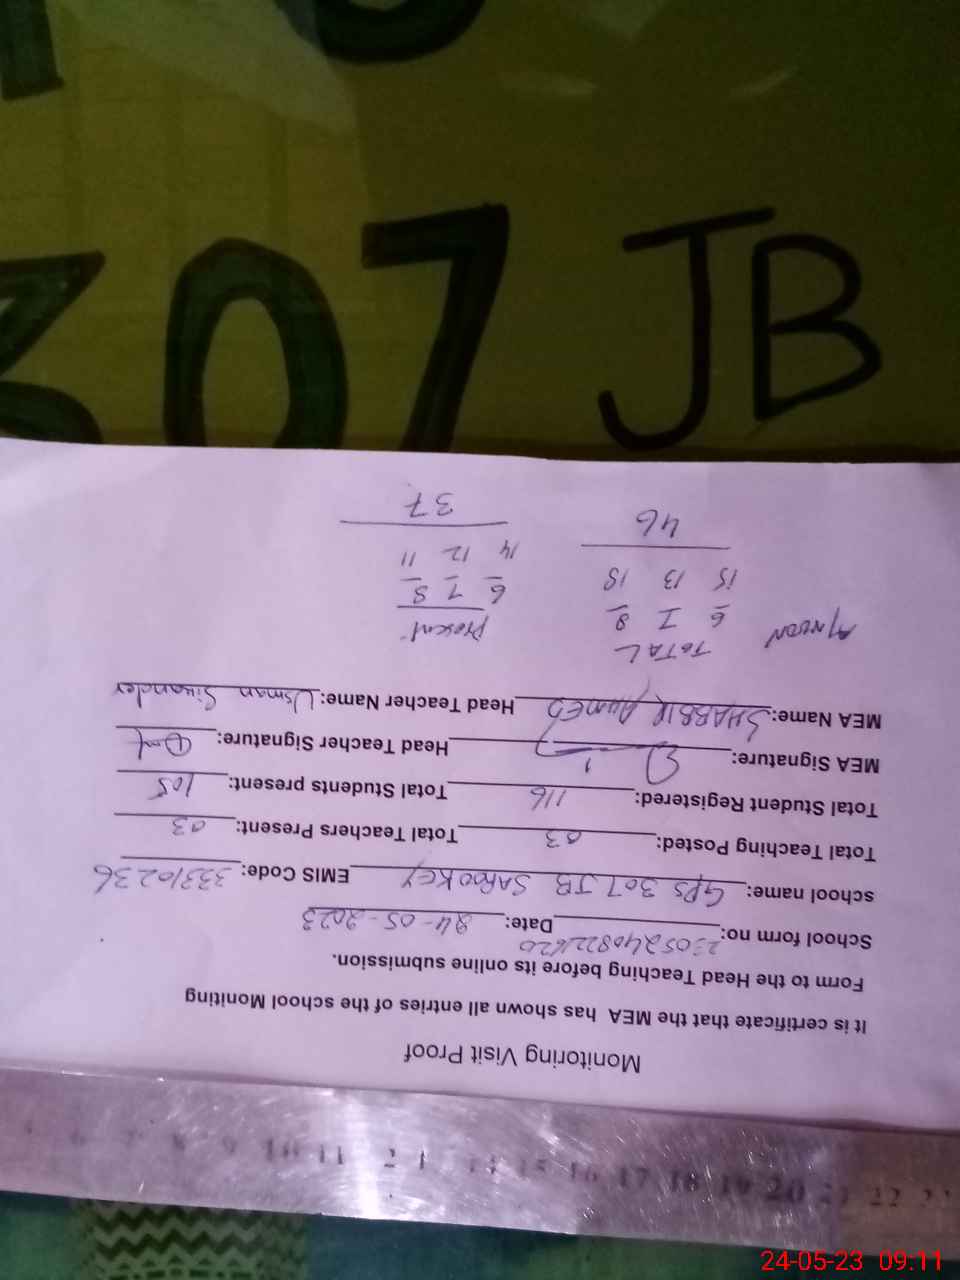 307 JB
Monitoring Visit Proof
It is certificate that the MEA has shown all entries of the school Moniting
Form to the Head Teaching before its online submission.
School form no: Date: 24-05-2023
school name: GPS 307 JB SAROOKEY EMIS Code: 33310236
Total Teaching Posted: 03 Total Teachers Present: 03
Total Student Registered: 116 Total Students present: 105
MEA Signature: Head Teacher Signature:
MEA Name: SHABBIR AHMED Head Teacher Name: Usman Sikander
TOTAL Present
6 7 8 6 7 8
15 13 18 14 12 11
46 37
6 7 8 9 10 11 2 1 14 15 16 17 18 19 20 21 22 23
24-05-23 09:11